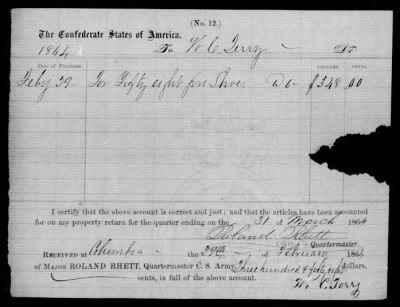 (No. 12.)
The Confederate States of America,
1864 To W. C. Terry Dr
Date of Purchase. DOLLARS. CENTS.
Feby 29 For Fifty eight prs Shoes @ 6- $348.00
I certify that the above account is correct and just; and that the articles have been accounted
for on my property return for the quarter ending on the 31 of March 1864
Roland Rhett
Quartermaster.
RECEIVED at Columbia the 29th of February 1864
of MAJOR ROLAND RHETT, Quartermaster C. S. Army, Three hundred & forty eight Dollars,
cents, in full of the above account.
W. C. Terry